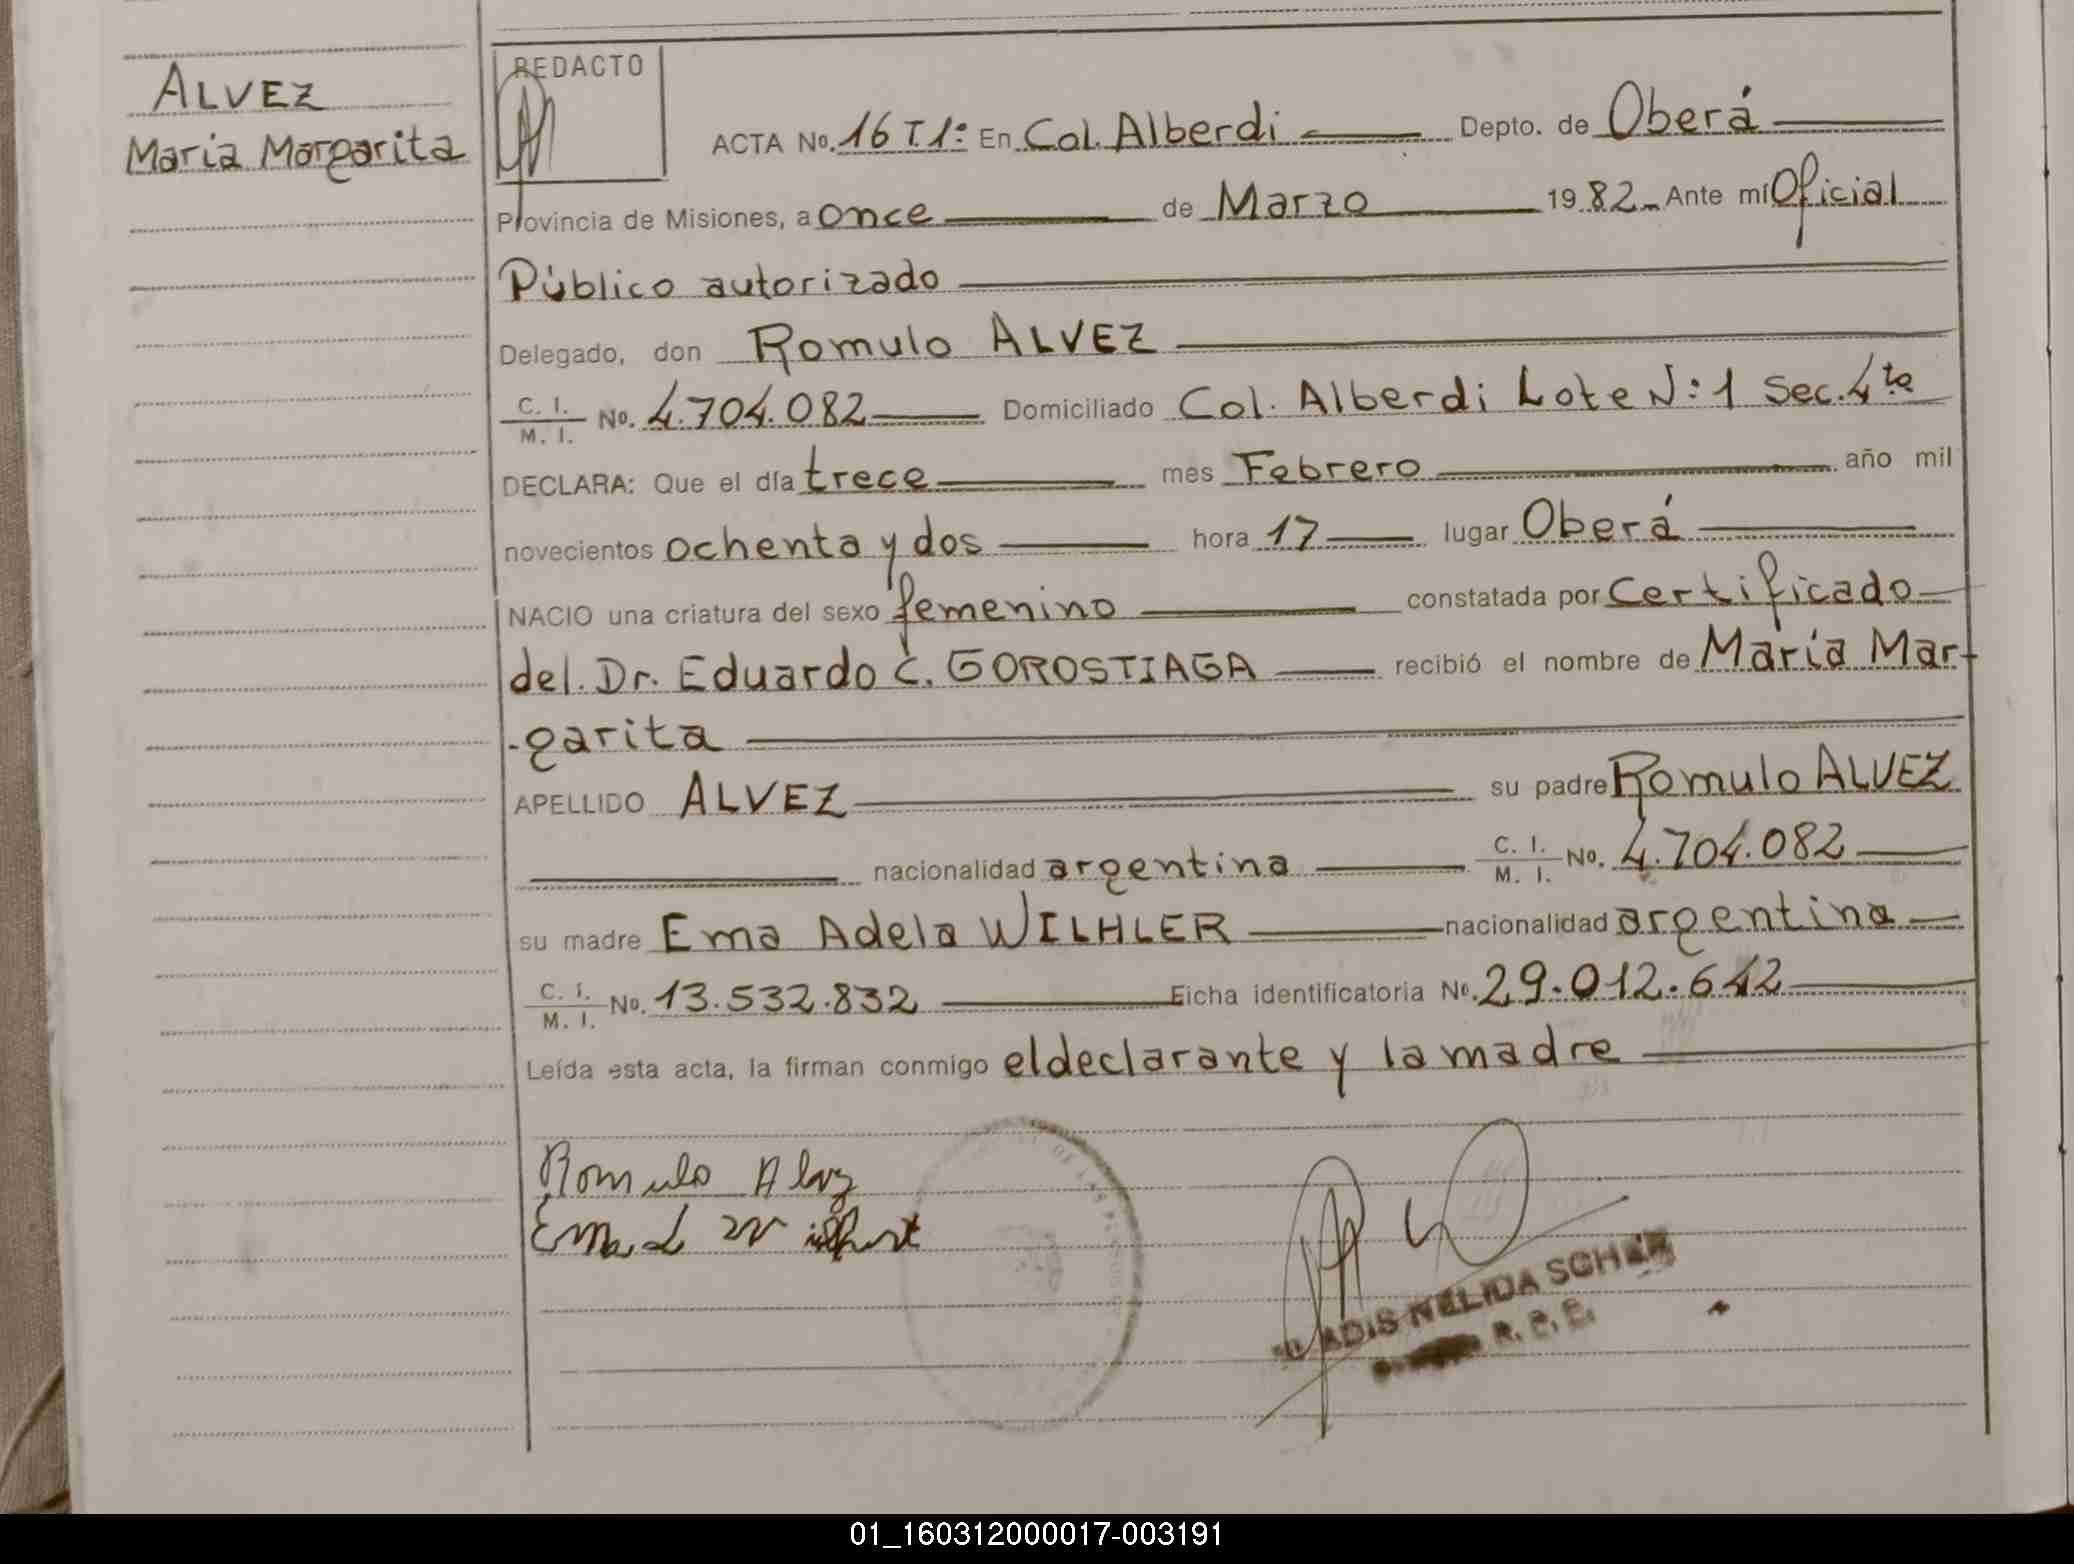 ALVEZ
María Margarita
REDACTO
ACTA No. 16 T.1º En Col. Alberdi Depto. de Oberá
Provincia de Misiones, a once de Marzo 1982 Ante mí Oficial
Público autorizado
Delegado, don Romulo ALVEZ
C. I. / M. I. No. 4.704.082 Domiciliado Col. Alberdi Lote Nº 1 Sec. 4ta
DECLARA: Que el día trece mes Febrero año mil
novecientos ochenta y dos hora 17 lugar Oberá
NACIO una criatura del sexo femenino constatada por Certificado
del. Dr. Eduardo C. GOROSTIAGA recibió el nombre de María Mar-
-garita
APELLIDO ALVEZ su padre Romulo ALVEZ
nacionalidad argentina C. I. / M. I. No. 4.704.082
su madre Ema Adela WILHLER nacionalidad argentina
C. I. / M. I. No. 13.532.832 Ficha identificatoria No. 29.012.642
Leída esta acta, la firman conmigo el declarante y la madre
Romulo Alvz
NELIDA
01_160312000017-003191